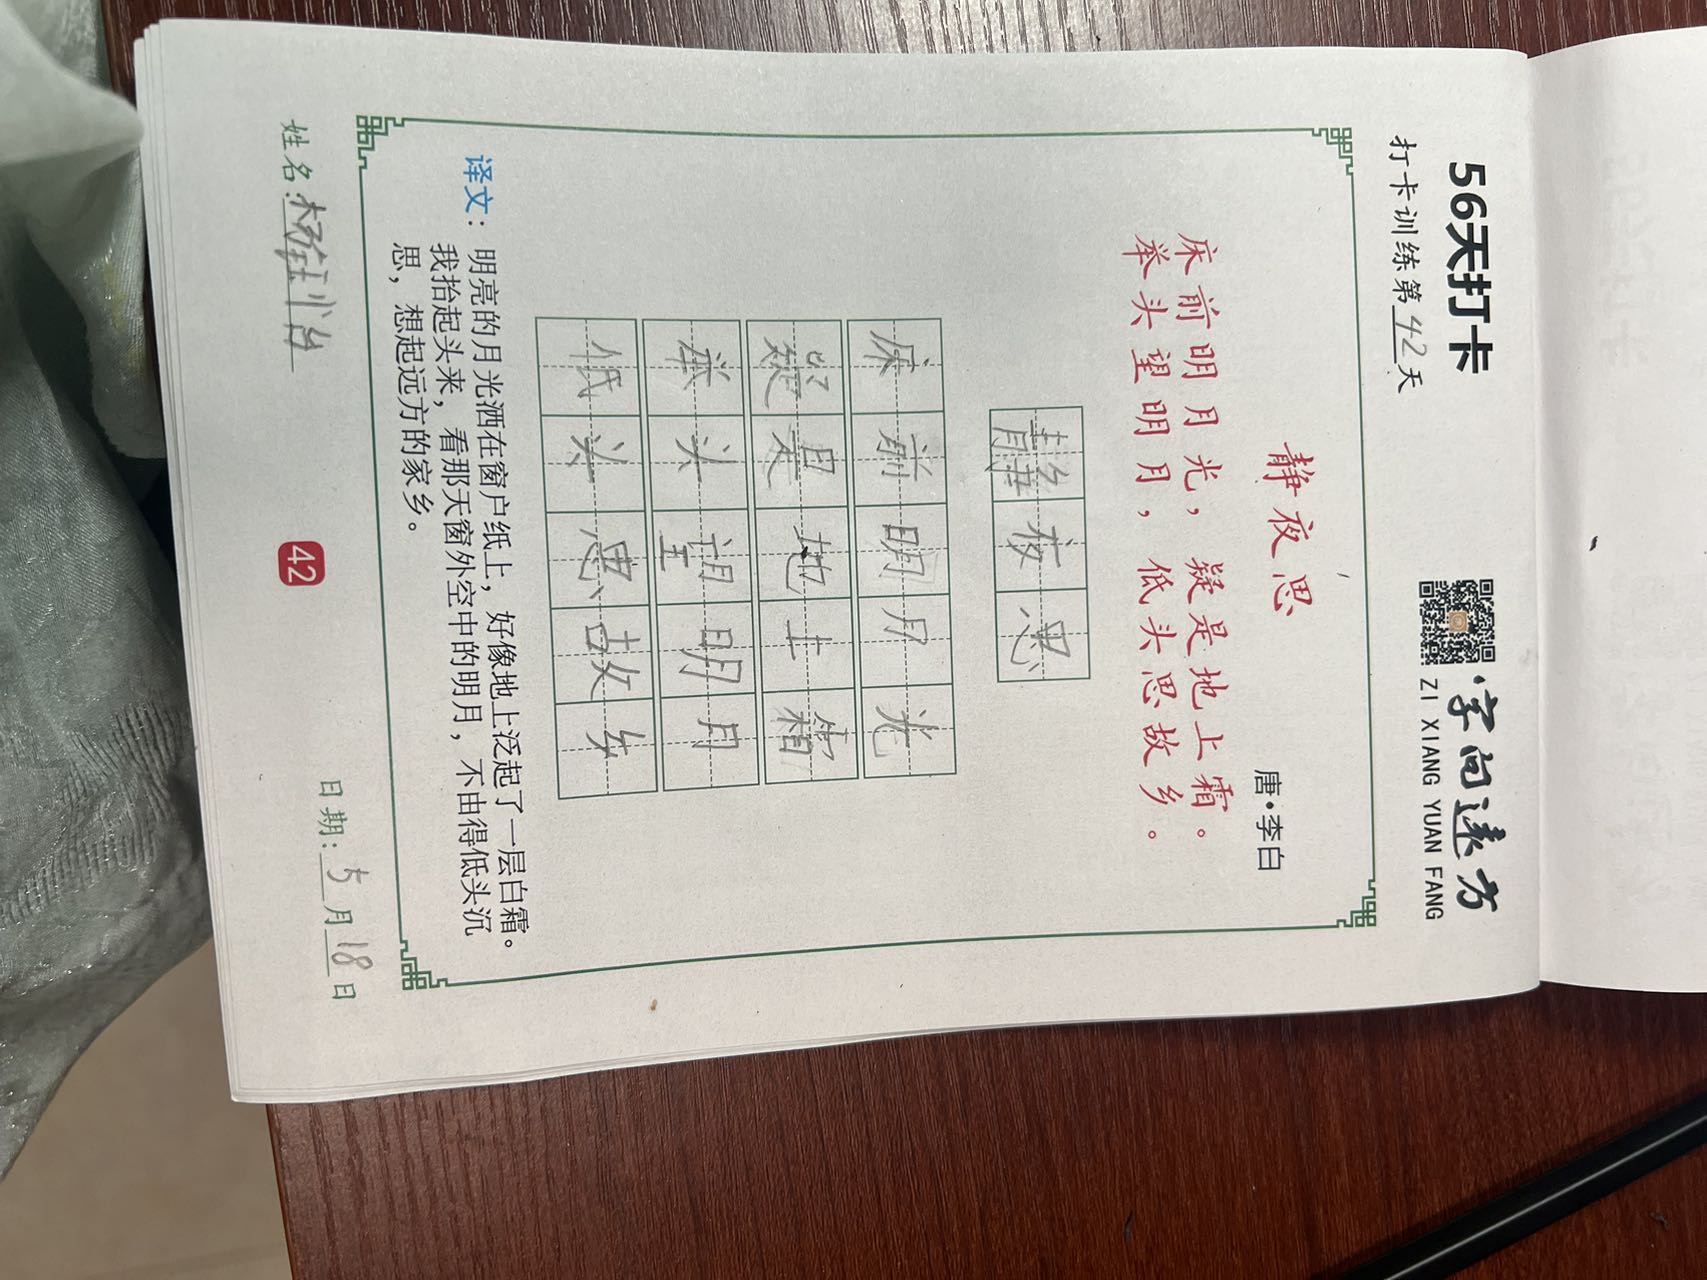 56天打卡
字向远方
ZI XIANG YUAN FANG
打卡训练第42天
静夜思
唐·李白
床前明月光，疑是地上霜。
举头望明月，低头思故乡。
静夜思
床前明月光
疑是地上霜
举头望明月
低头思故乡
译文：明亮的月光洒在窗户纸上，好像地上泛起了一层白霜。
我抬起头来，看那天窗外空中的明月，不由得低头沉
思，想起远方的家乡。
姓名：杨
42
日期：5月18日